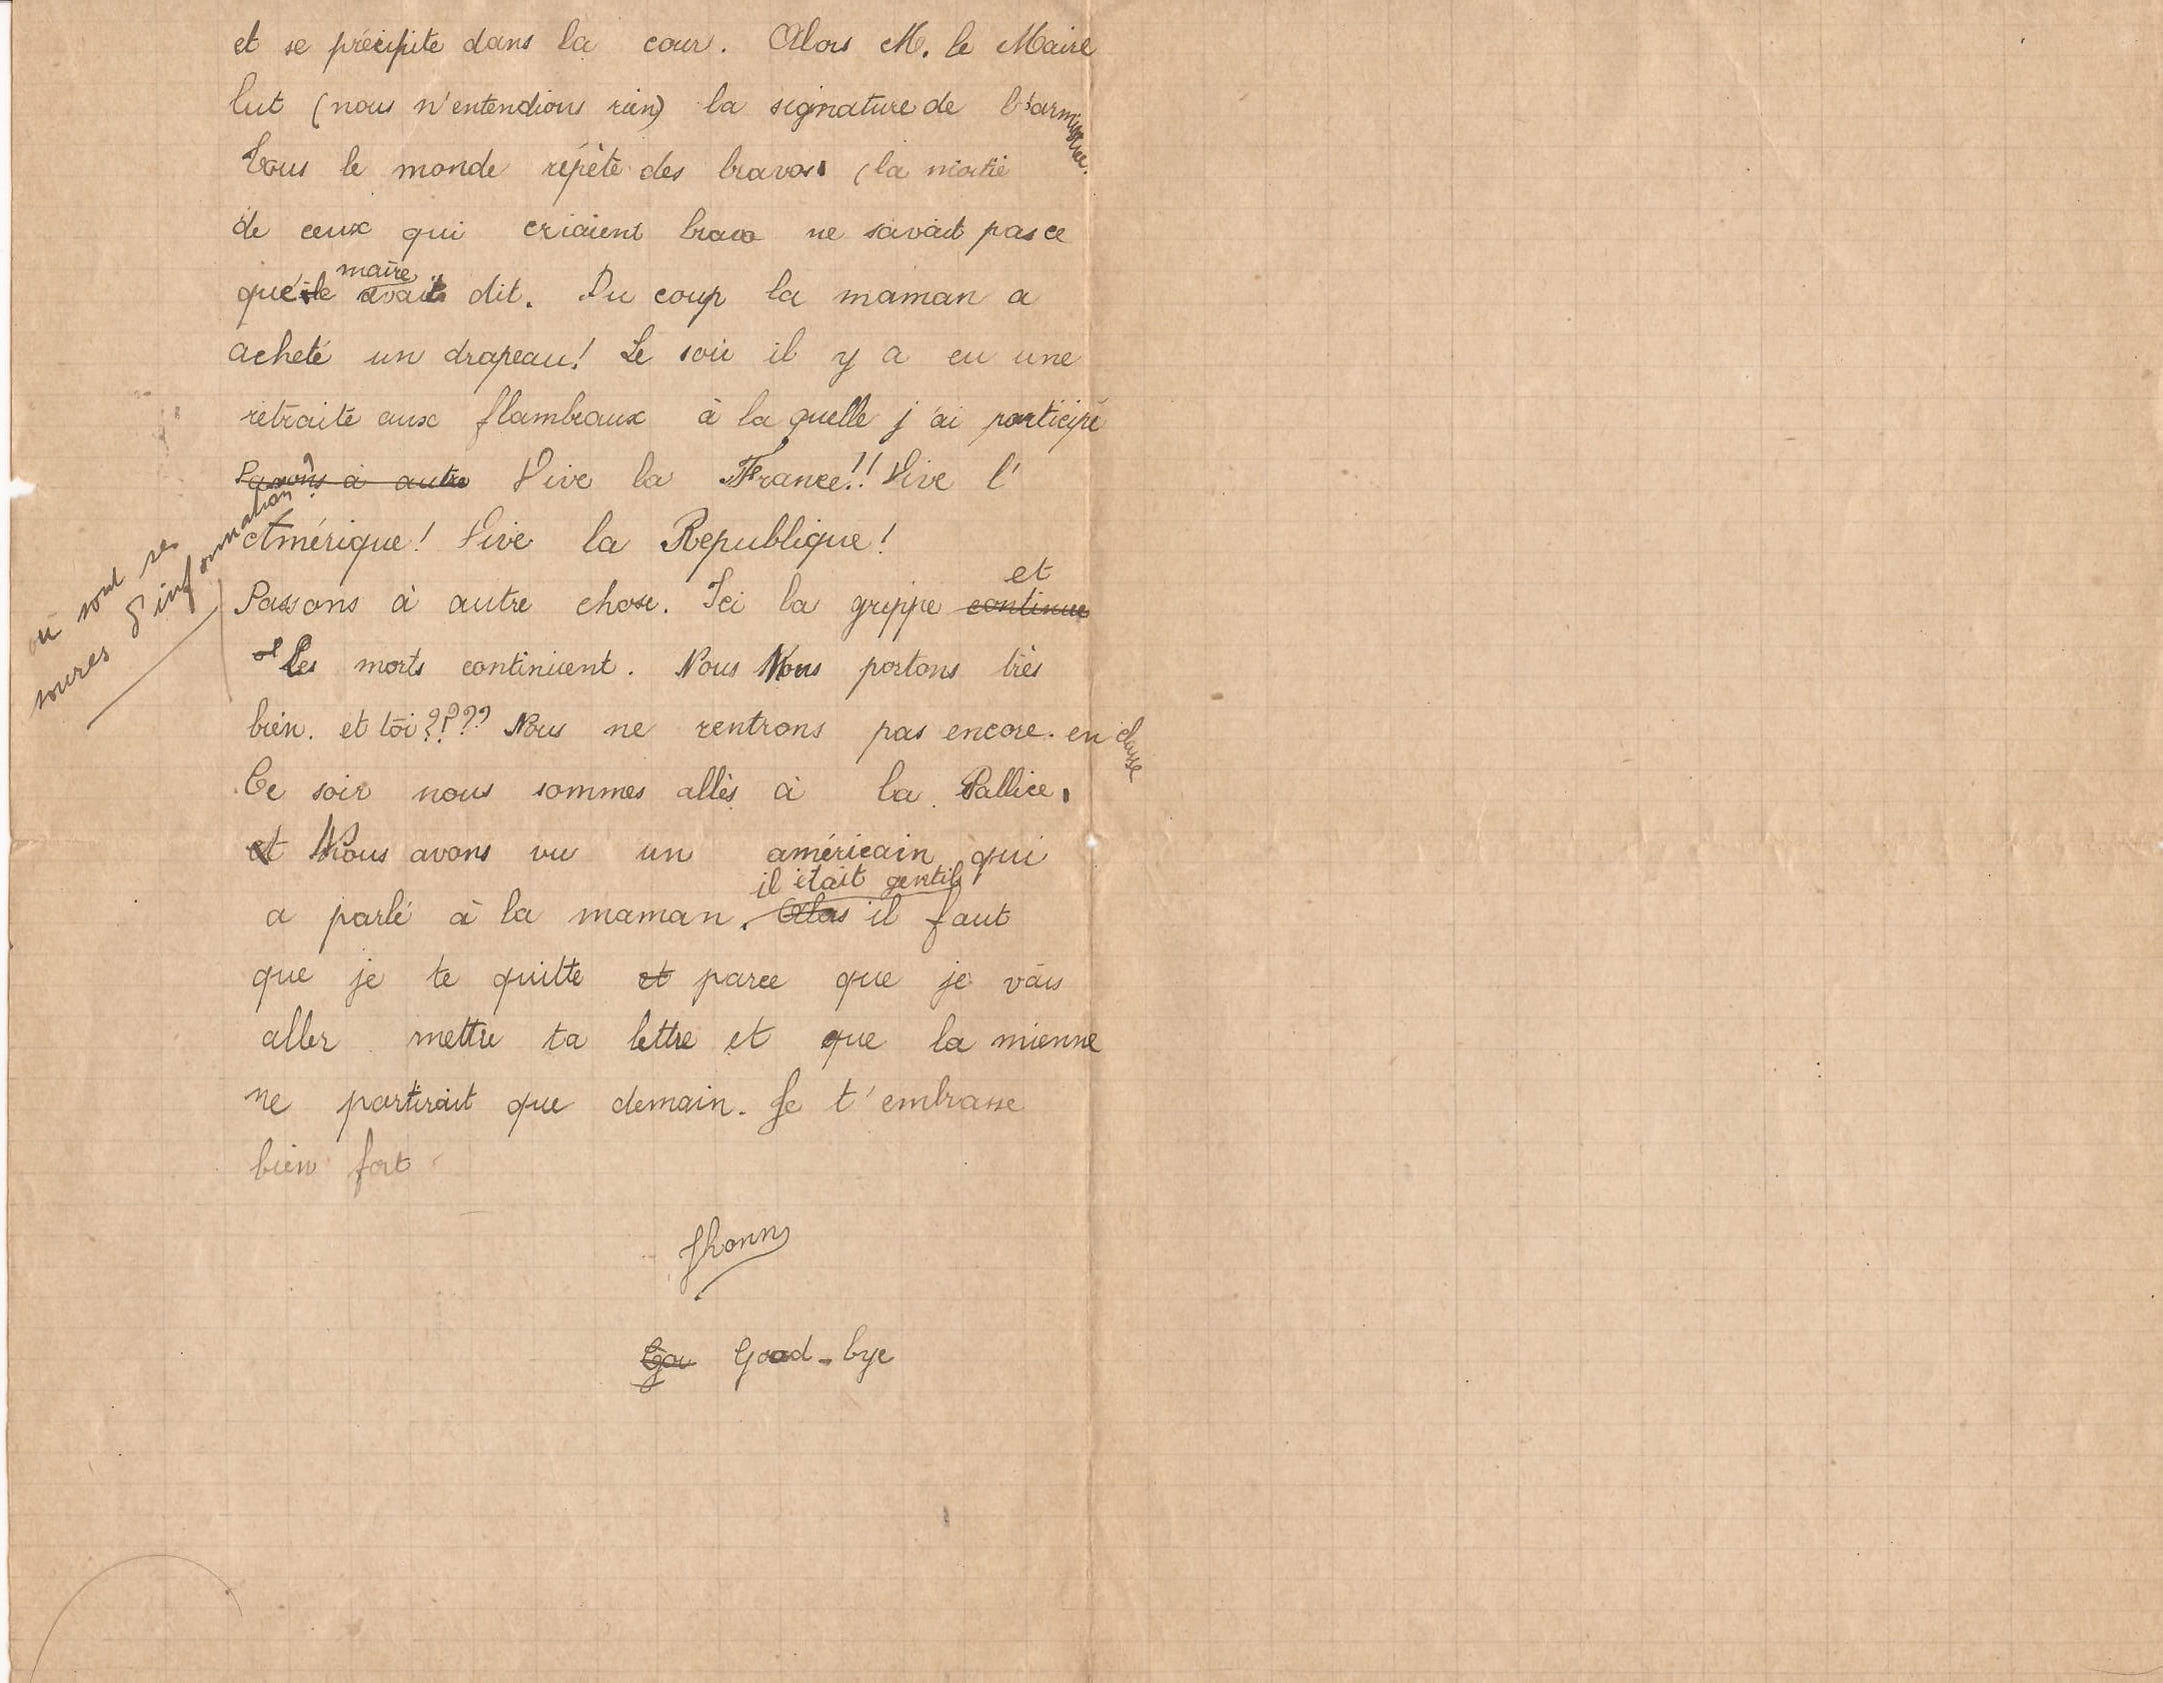 et se précipite dans la cour. Alors M. le Maire
lut (nous n'entendions rien) la signature de l'armistice.
Tous le monde répète des bravos (la moitié
de ceux qui criaient bravo ne savait pas ce
que le maire avait dit. Du coup la maman a
acheté un drapeau! Le soir il y a eu une
retraite aux flambeaux à la quelle j'ai participé
Passons à autre Vive la France!! Vive l'
Amérique! Vive la Republique!
Passons à autre chose. Ici la grippe continue et
Les morts continuent. Nous Nous portons très
bien. et toi???? Nous ne rentrons pas encore. en classe
Ce soir nous sommes allés à la Pallice.
et Nous avons vu un américain qui
a parlé à la maman. Alors il était gentil il faut
que je te quitte et parce que je vais
aller mettre ta lettre et que la mienne
ne partirait que demain. Je t'embrasse
bien fort
Jhonn
Goo Good-bye
où sont ses
sources d'information?